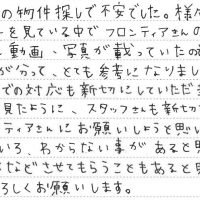 の物件探しで不安でした。様
を見ている中でフロンティアさんの
動画、写真が載っていたの
が分って、とても参考になりまし
での対応も親切にしていただ
見たように、スタッフさんも親切
ティアさんにお願いしようと思い
いろ、わからない事があると思
などさせてもらうこともあると思
ろしくお願いします。